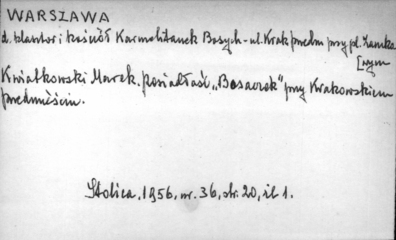 WARSZAWA
d. klasztor i kościół Karmelitanek Bosych - ul. Krak przedm przy pl. Zamko
[wym
Kwiatkowski Marek. Posiadłość „Bosaczek" przy Krakowskiem
przedmieściu.
Stolica, 1956, nr. 36, str. 20, il 1.